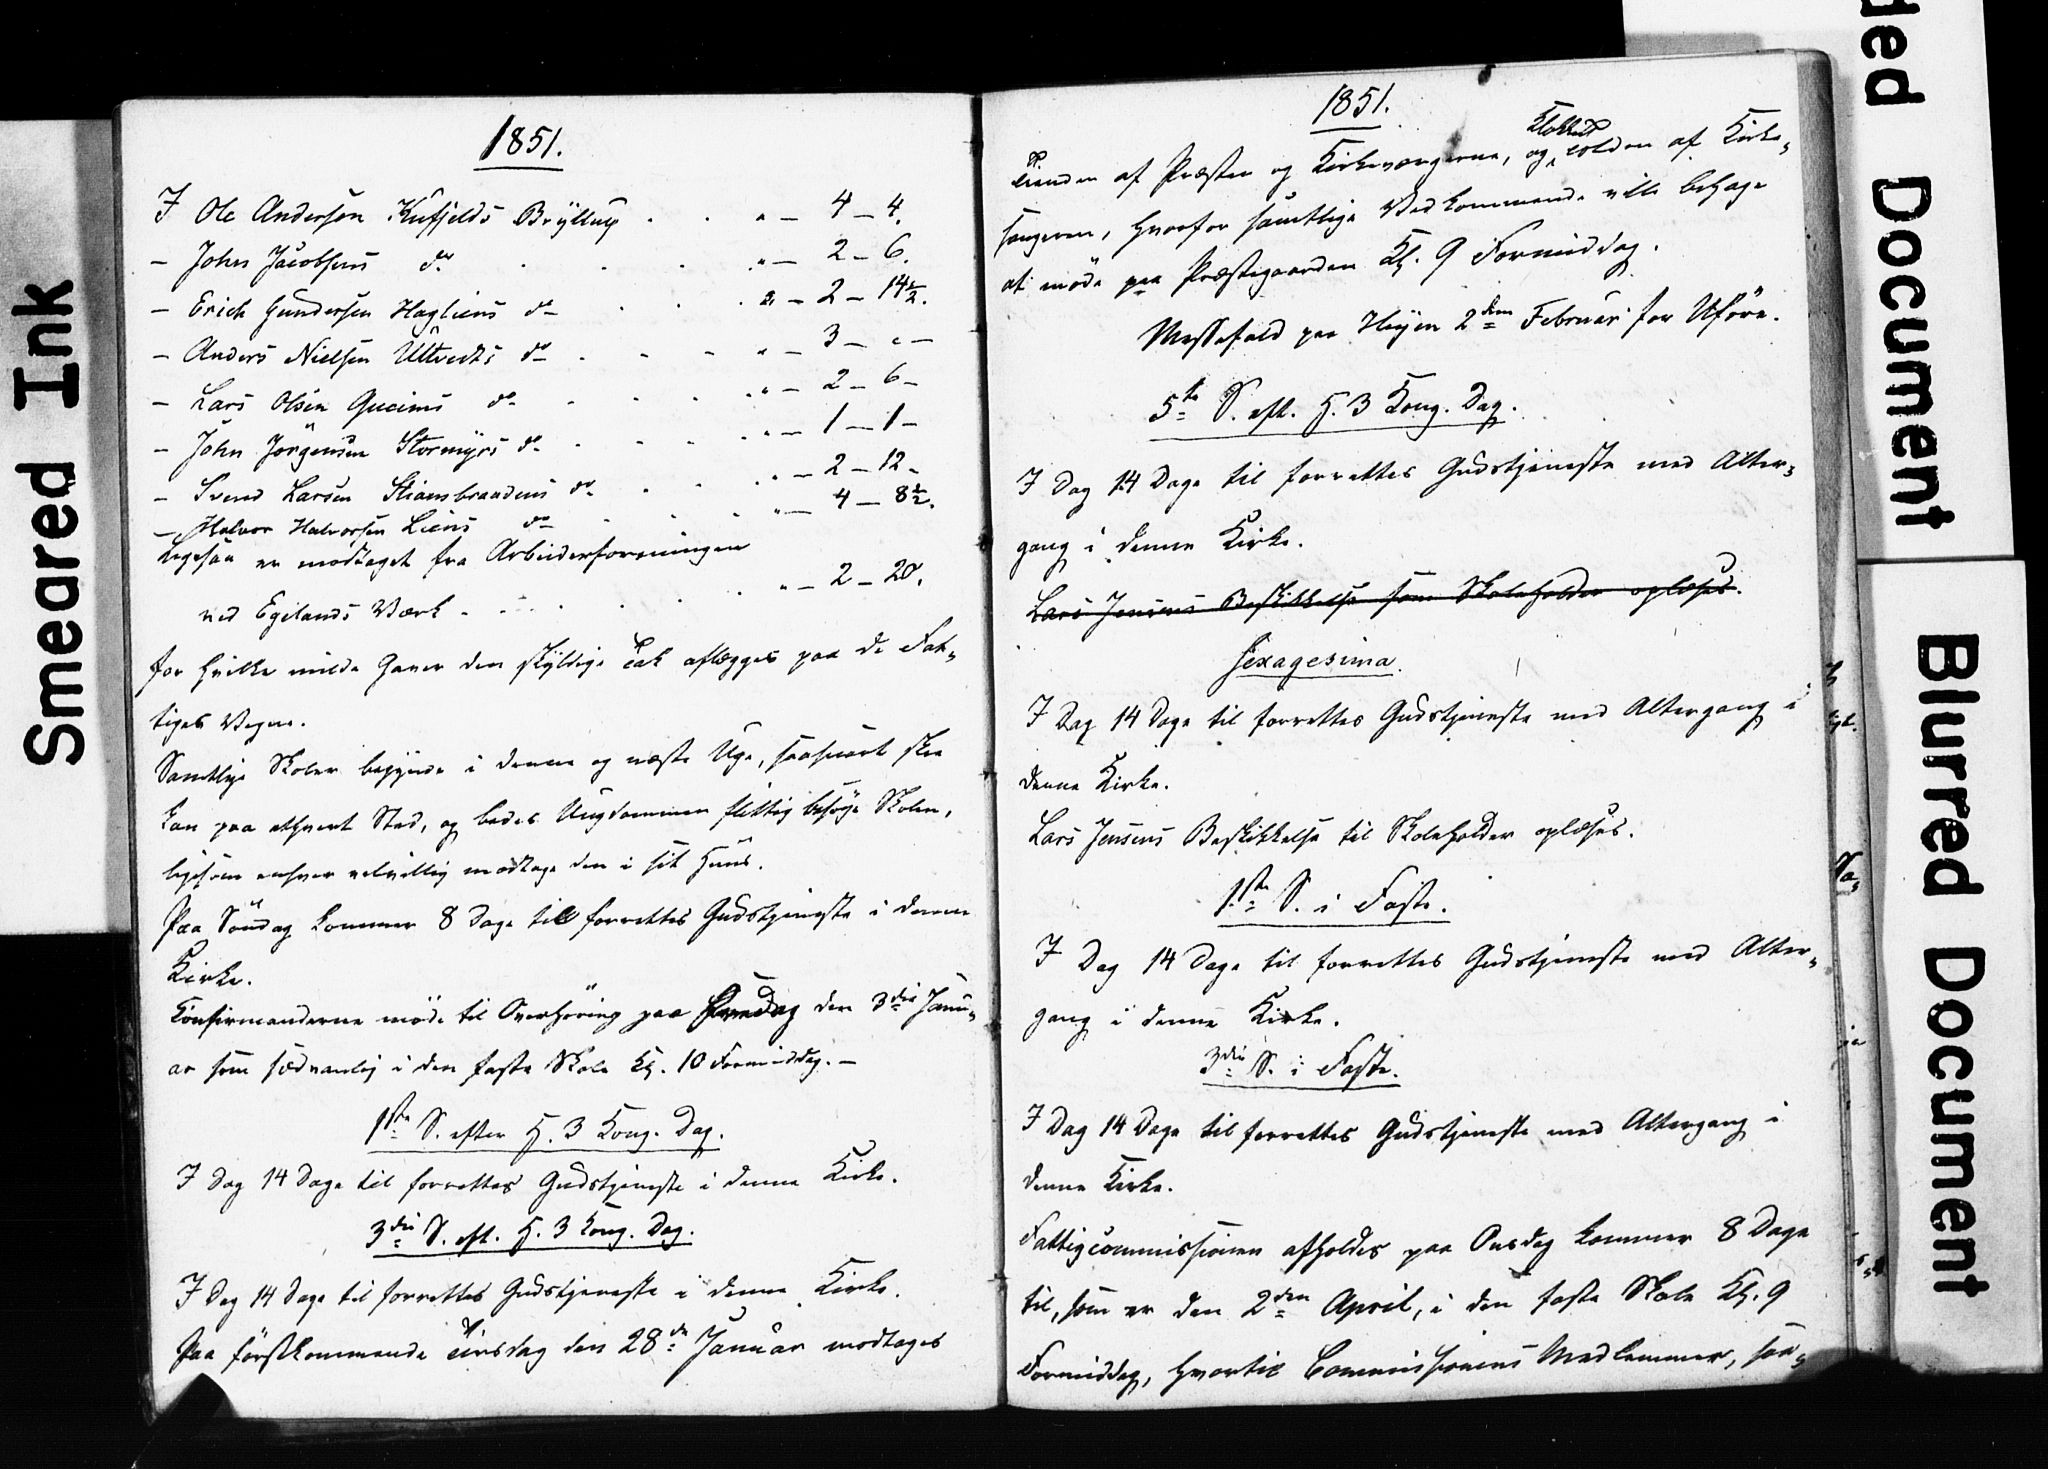 Smeared Ink
1851.
I Ole Andersen Kufjelds Bryllup . . „ — 4 — 4.
— John Jacobsens do . . . . „ — 2 — 6.
— Erich Gundersen Hagliens do . . . „ — 2 — 14½.
— Anders Nielsen Ultvedts do . . . „ — 3 — „ —
— Lars Olsen do . . . „ — 2 — 6 —
— John Jörgensen Stormyrs do . . . „ — 1 — 1 —
— Svend Larsen Stiansbraadens do . . . „ — 2 — 12 -
— Halvor Halvorsen Liens do . . . „ — 4 — 8½.
Ligesaa er modtaget fra Arbeiderforeningen
ved Egelands Værk . . . . . . „ — 2 — 20.
for hvilke milde Gaver den skyldige Tak aflægges paa de Fat-
tiges Vegne.
Samtlige Skoler begynde i denne og næste Uge, saasnart skee
kan paa ethvert Sted, og bedes Ungdommen flittig besöge Skolen,
ligesom enhver velvillig modtage den i sit Huus.
Paa Söndag kommer 8 Dage til forrettes Gudstjeneste i denne
Kirke.
Confirmanderne möde til Overhöring paa den 3die Janu-
ar som sædvanlig i den faste Skole Kl. 10 Formiddag. —
1ste S. efter H. 3 Kong. Dag.
I Dag 14 Dage til forrettes Gudstjeneste i denne Kirke.
3die S. eft. H. 3 Kong. Dag.
I Dag 14 Dage til forrettes Gudstjeneste i denne Kirke.
Paa förstkommende Tirsdag den 28de Januar modtages
1851.
Tienden af Præsten og Kirkeværgerne, og Klokker tolden af Kirke-
sangeren, hvorfor samtlige Vedkommende ville behage
at möde paa Præstegaarden Kl. 9 Formiddag.
Messefald paa Heyen 2den Februar for Uföre.
5te S. eft. H. 3 Kong. Dag.
I Dag 14 Dage til forrettes Gudstjeneste med Alter-
gang i denne Kirke.
Lars Jensens Beskikkelse som Skoleholder oplæses.
Sexagesima.
I Dag 14 Dage til forrettes Gudstjeneste med Altergang i
denne Kirke.
Lars Jensens Beskikkelse til Skoleholder oplæses.
1ste S. i Faste.
I Dag 14 Dage til forrettes Gudstjeneste med Alter-
gang i denne Kirke.
3die S. i Faste.
I Dag 14 Dage til forrettes Gudstjeneste med Altergang i
denne Kirke.
Fattigcommissionen afholdes paa Onsdag kommer 8 Dage
til, som er den 2den April, i den faste Skole Kl. 9
Formiddag, hvortil Commissionens Medlemmer, saa-
ded Document
Blurred Document